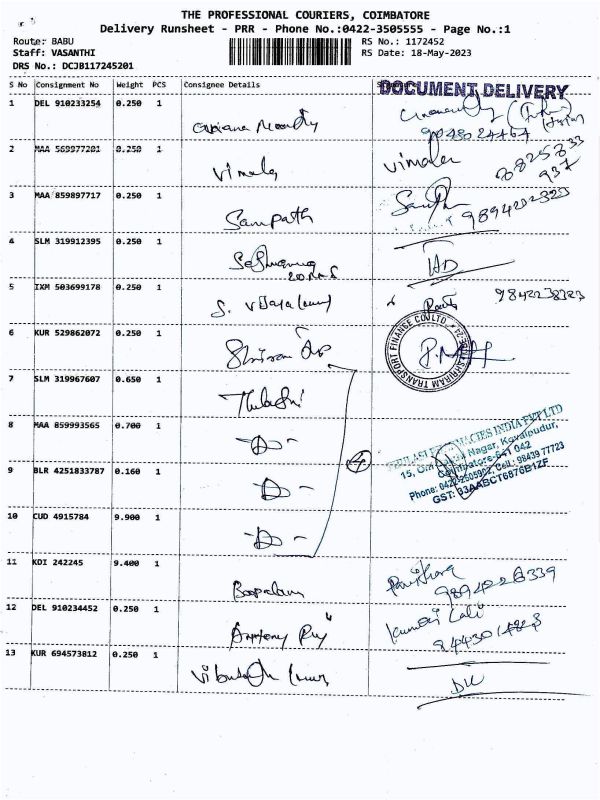 THE PROFESSIONAL COURIERS, COIMBATORE
Delivery Runsheet - PRR - Phone No.:0422-3505555 - Page No.:1
Route: BABU
Staff: VASANTHI
DRS No.: DCJB117245201
RS No.: 1172452
RS Date: 18-May-2023
S No Consignment No Weight PCS Consignee Details
DOCUMENT DELIVERY
1 DEL 910233254 0.250 1
2 MAA 569977201 0.250 1 Vimala Vimala
3 MAA 859897717 0.250 1 Sampath
4 SLM 319912395 0.250 1
5 IXM 503699178 0.250 1 S. Vijaya 9842238323
6 KUR 529862072 0.250 1 Shriram
SHRIRAM TRANSPORT FINANCE CO LTD
7 SLM 319967607 0.650 1 Thulasi
8 MAA 859993565 0.700 1 -D-
9 BLR 4251833787 0.160 1 -D-
4
PHARMACIES INDIA PVT LTD
15, Nagar, Kovaipudur,
Coimbatore-641 042
Phone: 0422-2605902, Cell: 98439 77723
GST: 33AABCT6876B1ZF
10 CUD 4915784 9.900 1 -D-
11 KDI 242245 9.400 1 Boopalan
12 DEL 910234452 0.250 1 Antony Raj
13 KUR 694573812 0.250 1